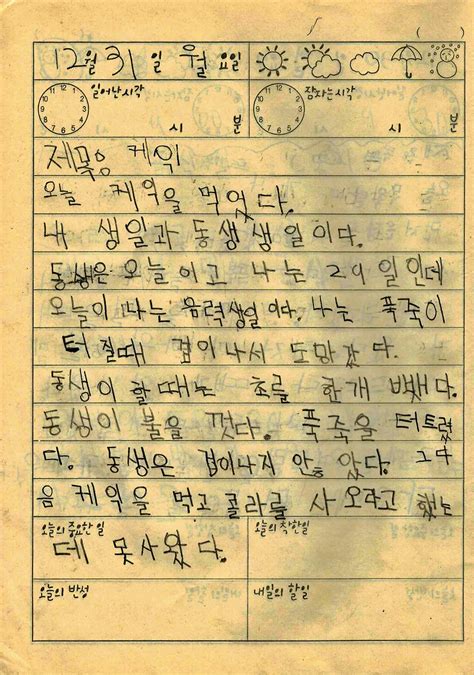 ( )
12월 31일 월요일
일어난시간 시 분 잠자는시간 시 분
제목: 케익
오늘 케익을 먹었다.
내 생일과 동생생일이다.
동생은 오늘이고 나는 2이일인데
오늘이 나는 음력생일이다. 나는 폭죽이
터질때 겁이나서 도망갔다.
동생이 할때는 초를 한개 뺐다.
동생이 불을 껏다. 폭죽을 터트렸
다. 동생은 겁이나지 안았다. 그다
음 케익을 먹고 콜라를 사오라고 했는
오늘의 중요한일 오늘의 착한일
데 못사왔다.
오늘의 반성 내일의 할일